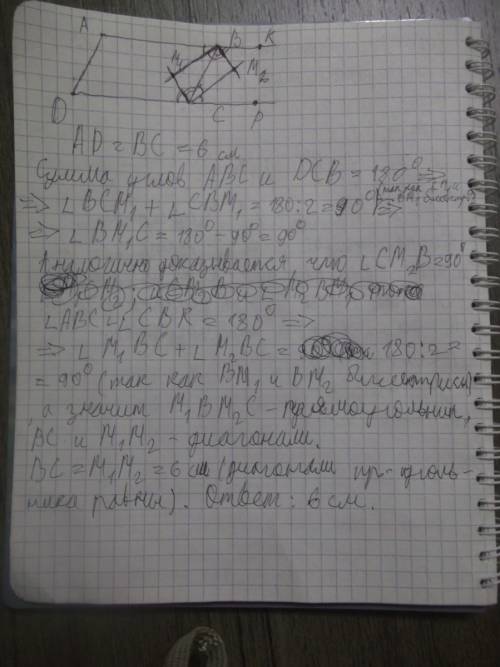 A B K
M₁ M₂
D C P
AD = BC = 6 см
Сумма углов ABC и DCB = 180° =>
=> ∠BCM₁ + ∠CBM₁ = 180:2 = 90° (так как CM₁ и BM₁ биссектрисы) =>
=> ∠BM₁C = 180° - 90° = 90°
Аналогично доказывается, что ∠CM₂B = 90°
∠ABC + ∠CBK = 180° =>
=> ∠M₁BC + ∠M₂BC = 180:2 =
= 90° (так как BM₁ и BM₂ биссектрисы)
, а значит M₁BM₂C - прямоугольник,
BC и M₁M₂ - диагонали.
BC = M₁M₂ = 6 см (диагонали пр-уголь-
ника равны). Ответ: 6 см.